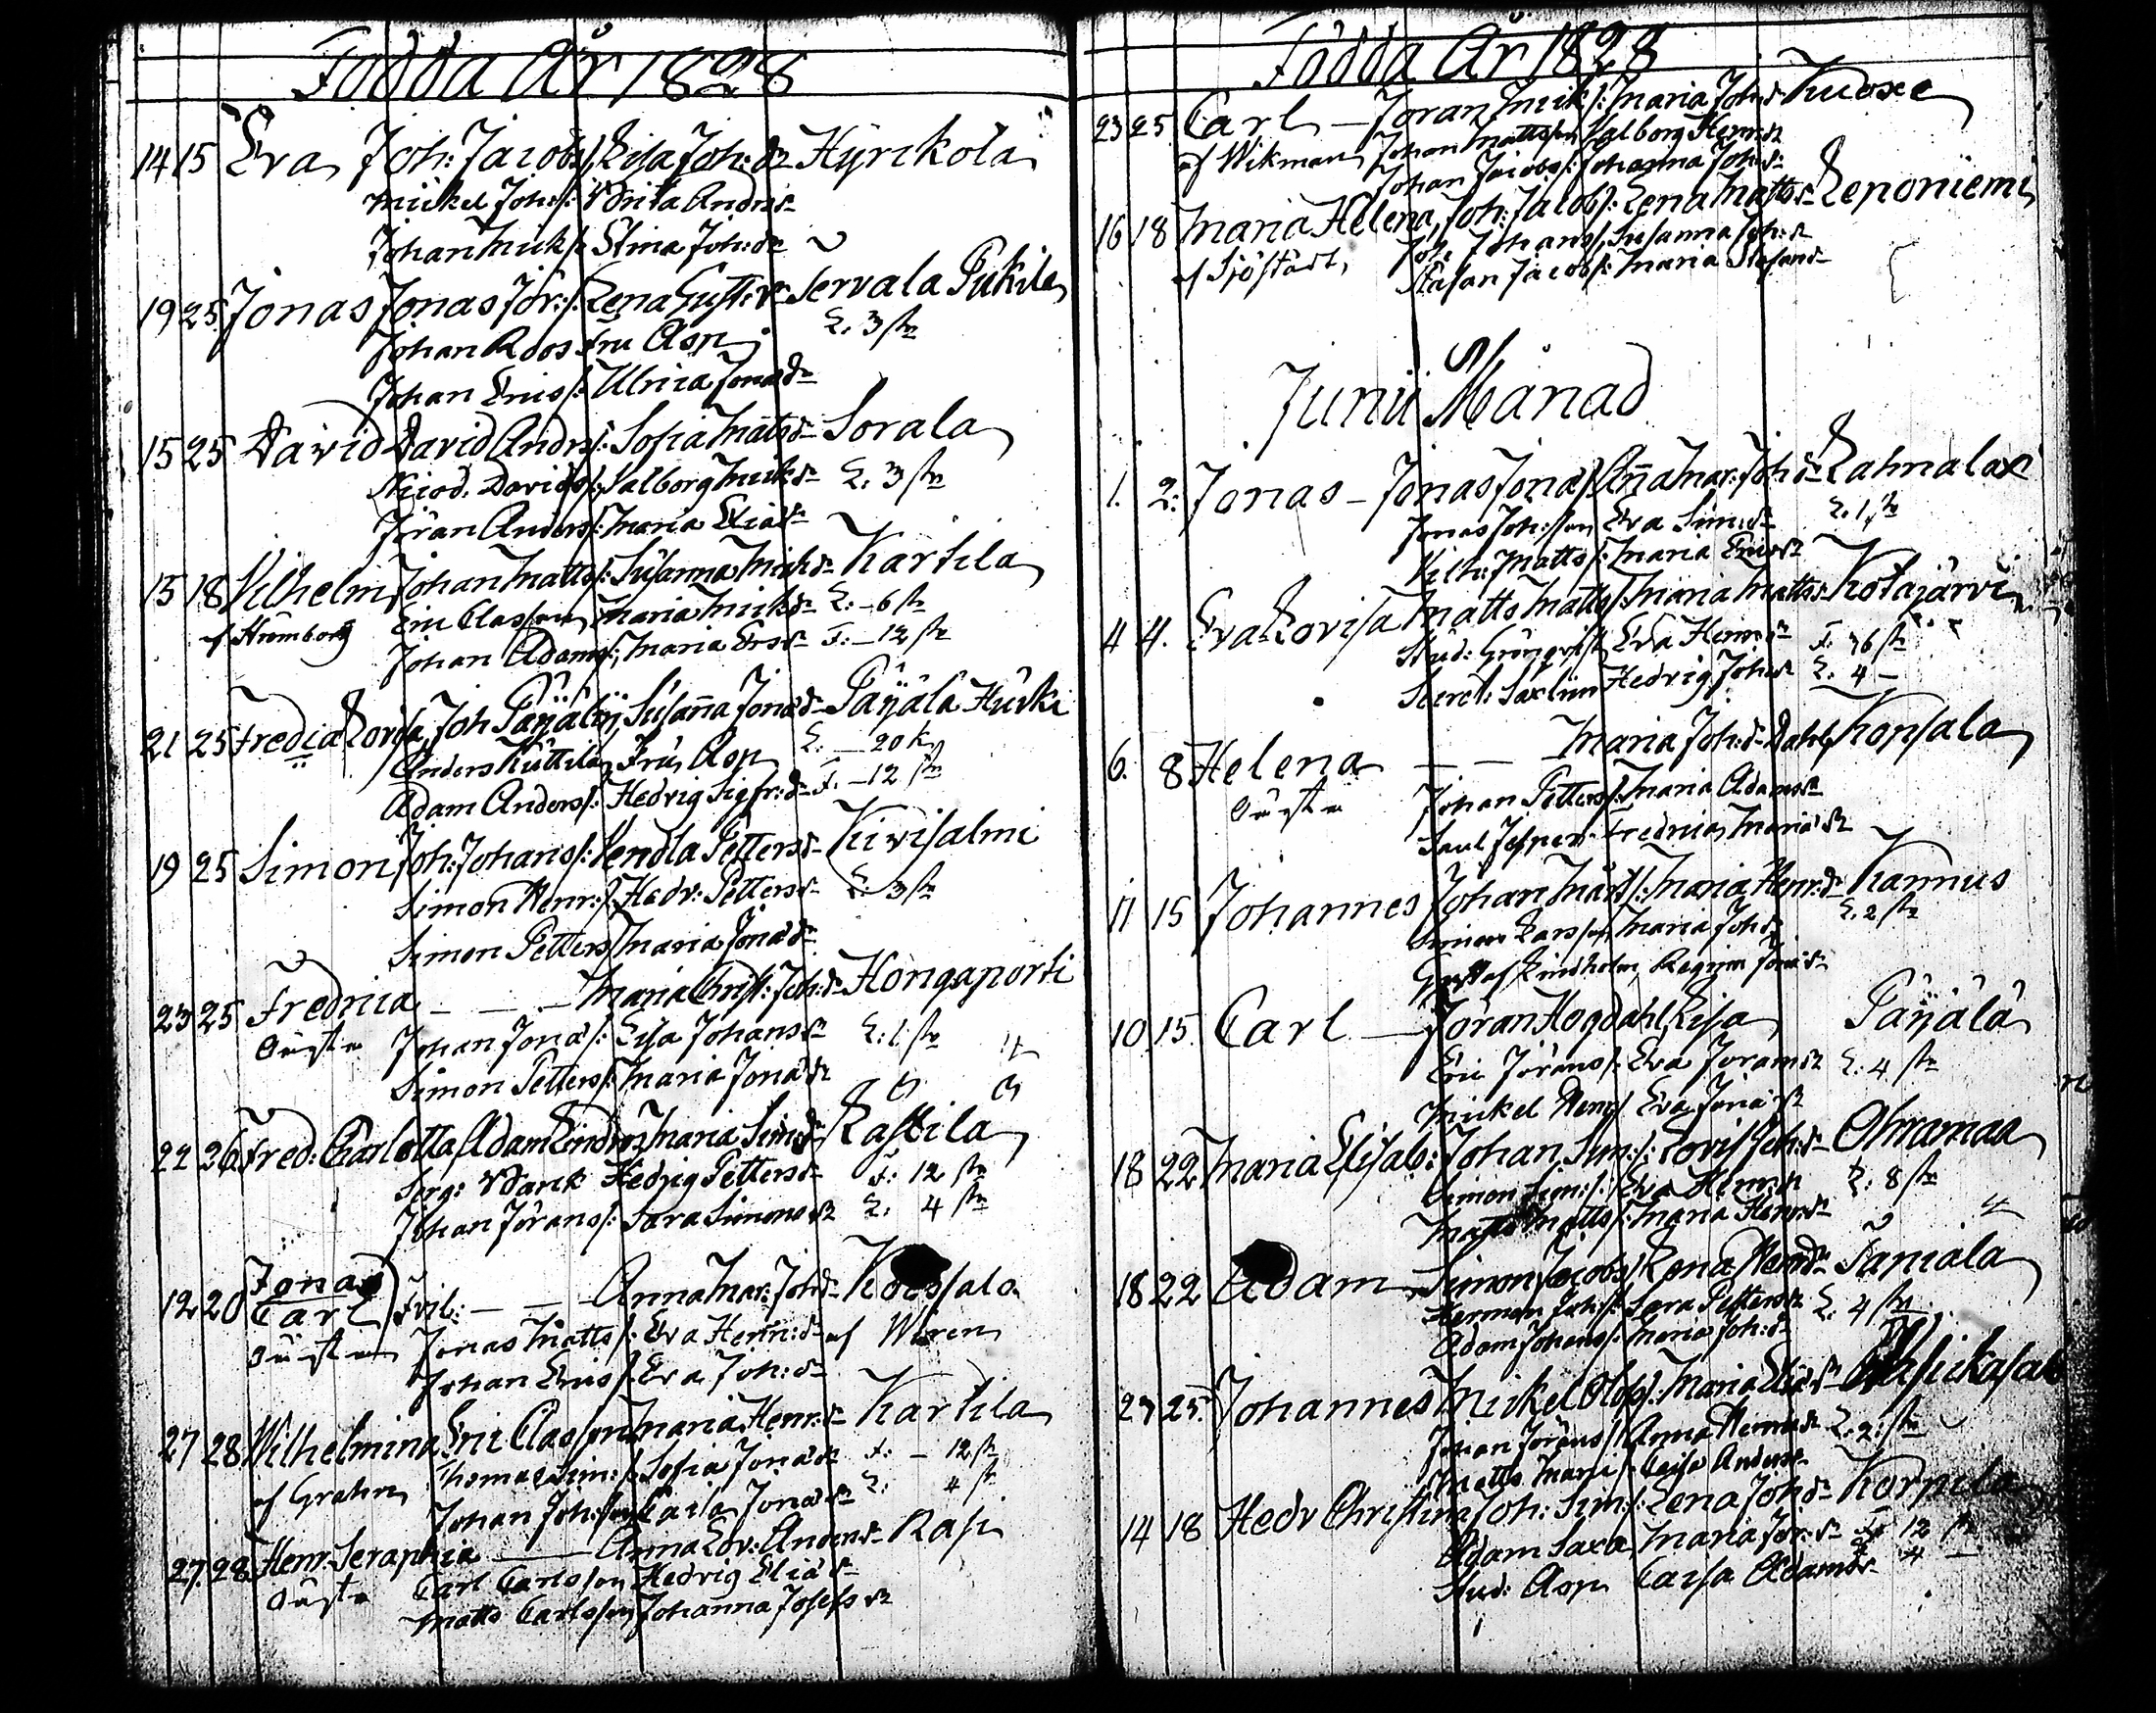 Födda År 1828
14 15 Eva Joh: Jacobs/: Lisa Joh: dr Hyrckola
Mickel Johs/: Brita Andrsdr
Johan Mick/: Stina Joh: dr
19 25 Jonas Jonas Jör:/: Lena Gust: dr Servala Pukila
Johan Roos Fru Asp L. 3 str
Johan Erics/: Ulrica Jonadr
15 25 David David Andrs/: Sofia Mattsdr Sorala
Nicod. Davids/: Valborg Micksdr L. 3 str
Jöran Anders/: Maria Eliädr
15 18 Vilhelm Johan Matts/: Susanna Mickdr Kartila
af Eric Classon Maria Micksdr L: 6 str
Johan Adams/: Maria Ersdr F: 12 str
21 25 Fredica Lovisa Joh Päjälä Susanna Jonadr Päjälä Hurki
Anders Kuttila Fru Asp L. 20 k
Adam Anders/: Hedvig Sigfr: dr F. 12 str
19 25 Simon Joh: Johans/: Vendla Pettersdr Kivisalmi
Simon Henr:/: Hedv: Pettersdr L. 3 str
Simon Petters/: Maria Jonadr
23 25 Fredrica Maria Christ: Joh: dr Hongaporti
Oägta Johan Jona/: Lisa Johansdr L: 1 str
Simon Petters/: Maria Jonadr
22 26 Fred: Charlotta Adam Lindros Maria Simsdr Lastila
Serg: Hedvig Pettersdr F: 12 str
Johan Jörans/: Sara Simonsdr L. 4 str
12 20 Jonas
Carl Fril: Anna Mar: Johdr
Oägta Jonas Matts/: Eva Henr: dr af Wiren
Johan Erics/: Eva Joh: dr
27 28 Wilhelmina Eric Classon Maria Henr: dr Kartila
af Grahn Thomas Sim:/: Sofia Jonadr F: 12 str
Johan Joh:son Caisa Jonasdr L: 4 str
27. 28 Henr: Seraphia Anna Lov: Andersdr Rasi
Oägta Carl Carlsson Hedvig Eliädr
Matts Carlsson Johanna Josefsdr
Födda År 1828
23 25 Carl Joran Mick/: Maria Joh: dr Kuoxe
af Wikman Johan Mattsson Valborg Henrdr
Johan Jacobs/: Johanna Johdr
16 18 Maria Helena Joh: Jacobs/: Lena Mattsdr Leponiemi
af Sjöstädt, Joh: Johans/: Susanna Joh: dr
Stafan Jacobs/: Maria Stafansdr
Junii Månad
1. 2. Jonas Jonas Jona/: Anna Mar: Joh dr Lahnalax
Jonas Joh:son Eva Sim: dr L. 1 str
Vilh: Matts/: Maria Ericsdr
4 4. Eva Lovisa Matts Matts/: Maria Mattsdr Kotajärvi
Stud: Grönqvist Eva Henrdr F. 36 str
Secret: Saxlin Hedvig Johdr L. 4
6. 8 Helena Maria Joh: dr Dahl Konsala
Oägta Johan Petters/: Maria Adamsdr
Saul Jesper: Fredrica Mariadr
11 15 Johannes Johan Mårt/: Maria Henr: dr Kannus
Simon Larsson Maria Johdr L. 2 str
Gustaf Lindholm, Regina Jonadr
10. 15. Carl Jöran Hogdahl Lisa Päjälä
Eric Jörans/: Eva Joransdr L. 4 str
Mickel Henr/: Eva Jonadr
18 22 Maria Elisab: Johan Sim:/: Lovis Joh: dr Ohramaa
Simon Sim:/: Eva Henr: dr L. 8 str
Matts Matts/: Maria Henrdr
18 22 Adam Simon Jacobs/: Lena Henrdr Paniala
Herman Johs/: Sara Pettersdr L. 4 str
Adam Johans/: Maria Joh: dr
23 25. Johannes Mickel Olofs/: Maria Eliadr
Johan Jörans/: Anna Henrdr L. 2 str
Matts Caisa Andersdr
14 18 Hedv Christina Joh: Sim:/: Lena Johdr Karpila
Adam Saxa, Maria Jör: dr F. 12 str
Stud: Asp Caisa Adamsdr 4